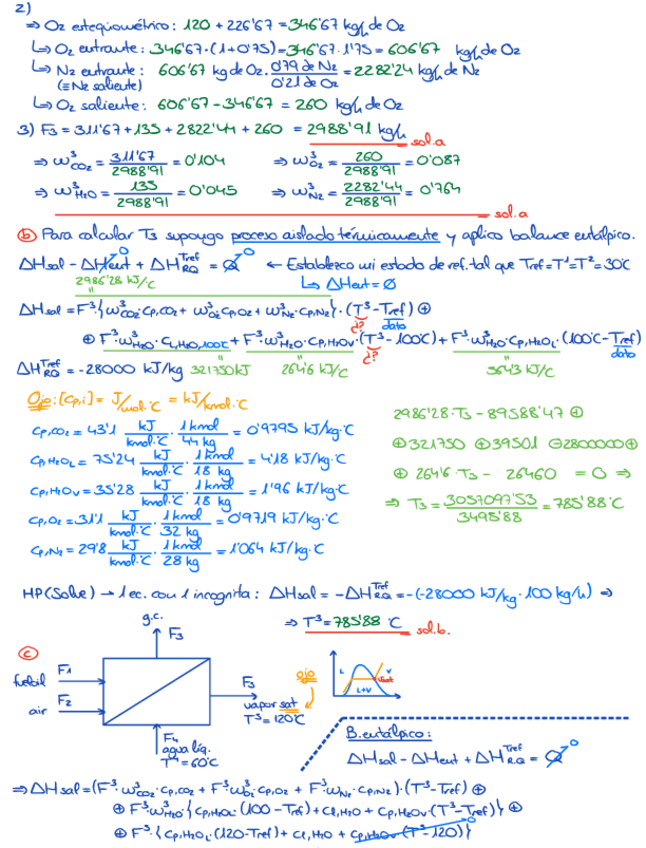 2)
⇒ O2 estequiométrico: 120 + 226'67 = 346'67 kg/h de O2
↳ O2 entrante: 346'67·(1+0'75)=346'67·1'75 = 606'67 kg/h de O2
↳ N2 entrante: 606'67 kg de O2 · 0'79 de N2 / 0'21 de O2 = 2282'24 kg/h de N2
(≡N2 saliente)
↳ O2 saliente: 606'67 - 346'67 = 260 kg/h de O2
3) F3 = 311'67 + 135 + 2822'44 + 260 = 2988'91 kg/h sol.a
⇒ ω³CO2 = 311'67 / 2988'91 = 0'104 ⇒ ω³O2 = 260 / 2988'91 = 0'087
⇒ ω³H2O = 135 / 2988'91 = 0'045 ⇒ ω³N2 = 2282'44 / 2988'91 = 0'764
sol.a
ⓑ Para calcular T3 supongo proceso aislado térmicamente y aplico balance entálpico.
ΔHsal - ΔHent + ΔH RQ Tref = Q 0 ← Establezco mi estado de ref. tal que Tref=T¹=T²=30°C
2986'28 kJ/°C ↳ ΔHent = 0
ΔHsal = F³·{ω³CO2·Cp,CO2 + ω³O2·Cp,O2 + ω³N2·Cp,N2}·(T³-Tref) ⊕
¿? dato
⊕ F³·ω³H2O·CL,H2O,100°C + F³·ω³H2O·Cp,H2Ov·(T³-100°C) + F³·ω³H2O·Cp,H2OL·(100°C-Tref)
¿? dato
ΔH RQ Tref = -28000 kJ/kg 321750kJ 264'6 kJ/°C 564'3 kJ/°C
Ojo: [Cp,i] = J/mol·°C = kJ/kmol·°C
Cp,CO2 = 43'1 kJ/kmol·°C · 1kmol/44 kg = 0'9795 kJ/kg·°C
Cp,H2OL = 75'24 kJ/kmol·°C · 1kmol/18 kg = 4'18 kJ/kg·°C
Cp,H2Ov = 35'28 kJ/kmol·°C · 1kmol/18 kg = 1'96 kJ/kg·°C
Cp,O2 = 31'1 kJ/kmol·°C · 1kmol/32 kg = 0'9719 kJ/kg·°C
Cp,N2 = 29'8 kJ/kmol·°C · 1kmol/28 kg = 1'064 kJ/kg·°C
2986'28·T3 - 89588'47 ⊕
⊕321750 ⊕39501 ⊖2800000⊕
⊕ 264'6·T3 - 26460 = 0 ⇒
⇒ T3 = 3057097'53 / 3495'88 = 785'88°C
HP(Solve) → 1 ec. con 1 incógnita: ΔHsal = -ΔH RQ Tref = -(-28000 kJ/kg · 100 kg/h) ⇒
⇒ T³ = 785'88 °C sol.b.
ⓒ
g.c.
F3
F1
fuelóil
F2
air
F5
vapor sat
T³=120°C
F4
agua líq.
T⁴=60°C
ojo
L
V
L+V
B.entálpico:
ΔHsal - ΔHent + ΔH RQ Tref = Q 0
⇒ ΔHsal = (F³·ω³CO2·Cp,CO2 + F³·ω³O2·Cp,O2 + F³·ωN2·Cp,N2)·(T³-Tref) ⊕
⊕ F³·ω³H2O·{Cp,H2OL·(100-Tref)+CL,H2O + Cp,H2Ov·(T³-Tref)} ⊕
⊕ F³·{Cp,H2OL·(120-Tref)+CL,H2O + Cp,H2Ov·(T³-120)}